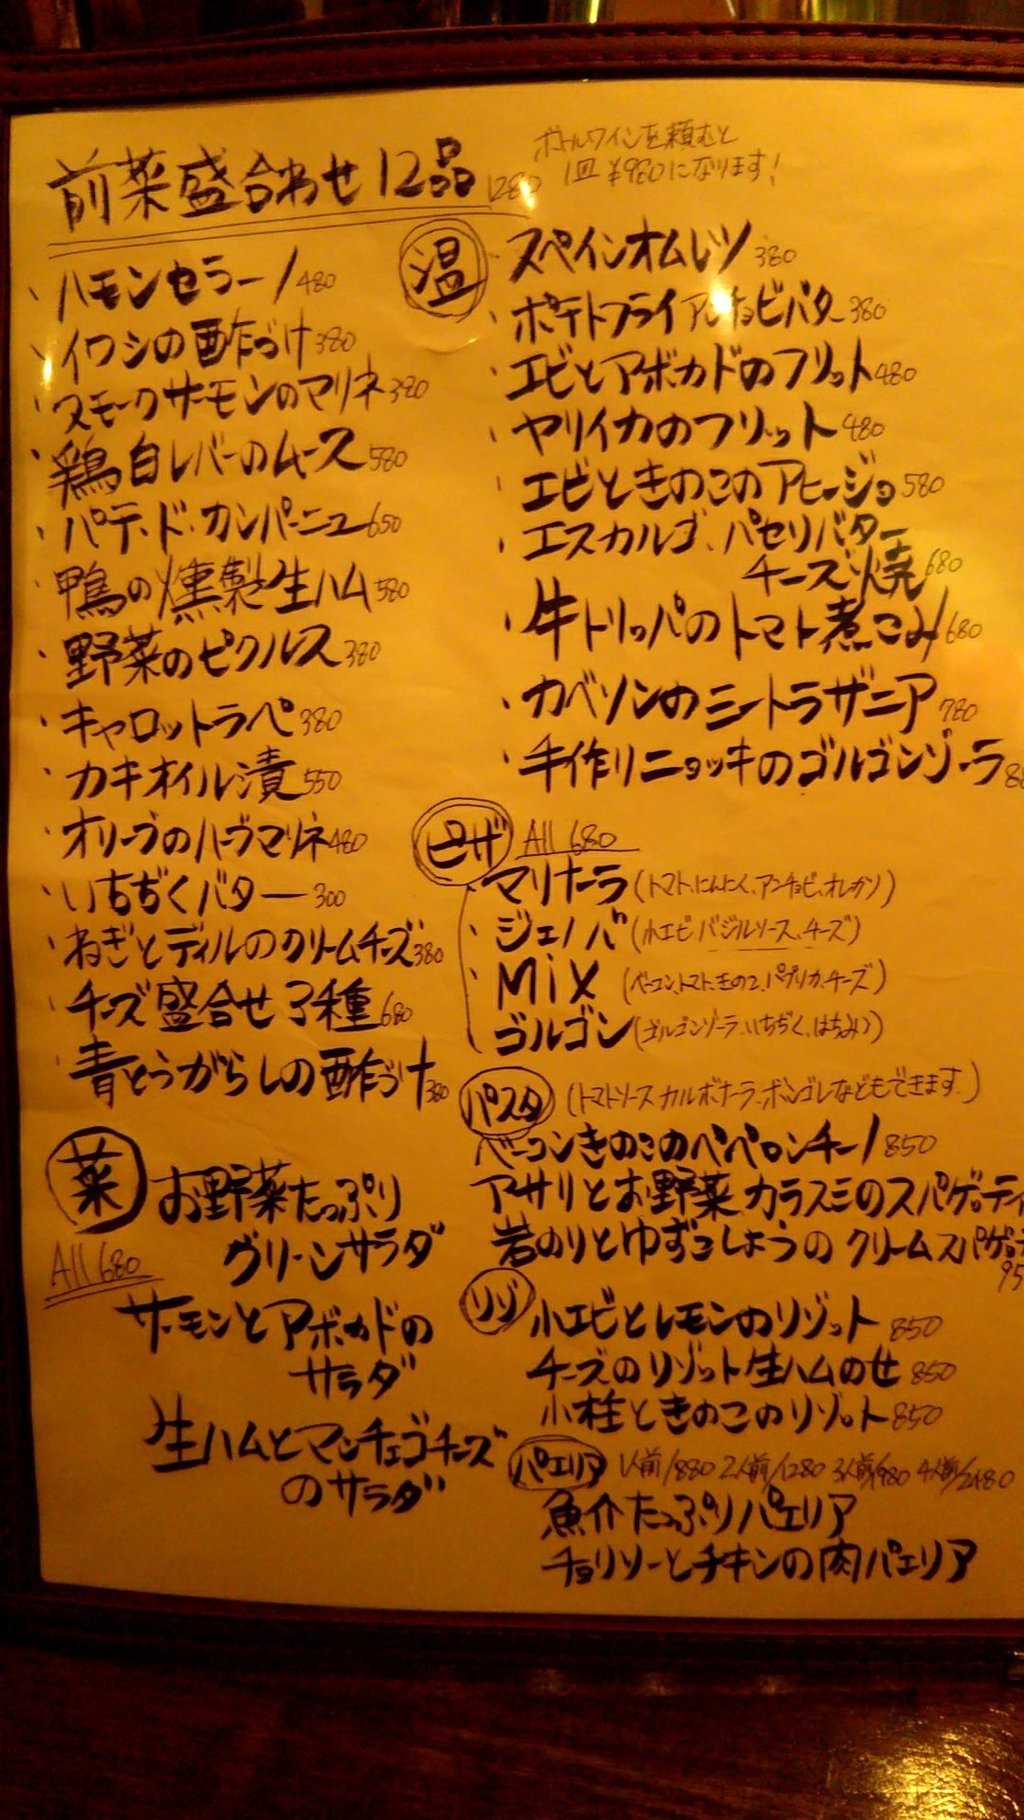 前菜盛合わせ12品 1280
ボトルワインを頼むと
1皿 ¥980になります!
・ハモンセラーノ 480
・イワシの酢づけ 380
・スモークサーモンのマリネ 380
・鶏白レバーのムース 580
・パテ・ド・カンパーニュ 650
・鴨の燻製生ハム 580
・野菜のピクルス 380
・キャロットラペ 380
・カキオイル漬 550
・オリーブのハーブマリネ 480
・いちぢくバター 300
・ねぎとディルのクリームチーズ 380
・チーズ盛合せ3種 680
・青とうがらしの酢づけ 380
菜
All 680
お野菜たっぷり
グリーンサラダ
サーモンとアボカドの
サラダ
生ハムとマンチェゴチーズ
のサラダ
温
・スペインオムレツ 380
・ポテトフライアンチョビバター 380
・エビとアボカドのフリット 480
・ヤリイカのフリット 480
・エビときのこのアヒージョ 580
・エスカルゴ、パセリバター
チーズ焼 680
・牛トリッパのトマト煮こみ 680
・カベソンのミートラザニア 780
・手作りニョッキのゴルゴンゾーラ
ピザ All 680
マリナーラ(トマト、にんにく、アンチョビ、オレガノ)
・ジェノバ(小エビ バジルソース、チーズ)
・MiX (ベーコン、トマト、きのこ、パプリカ、チーズ)
ゴルゴン(ゴルゴンゾーラ、いちぢく、はちみつ)
パスタ (トマトソース カルボナーラ、ボンゴレなどもできます。)
ベーコンきのこのペペロンチーノ 850
アサリとお野菜カラスミのスパゲッティ
岩のりとゆずこしょうのクリームスパゲッ
リゾ 小エビとレモンのリゾット 850
チーズのリゾット生ハムのせ 850
小柱ときのこのリゾット 850
パエリア 1人前/880 2人前/1280 3人前/1980 4人前/2480
魚介たっぷりパエリア
チョリソーとチキンの肉パエリア